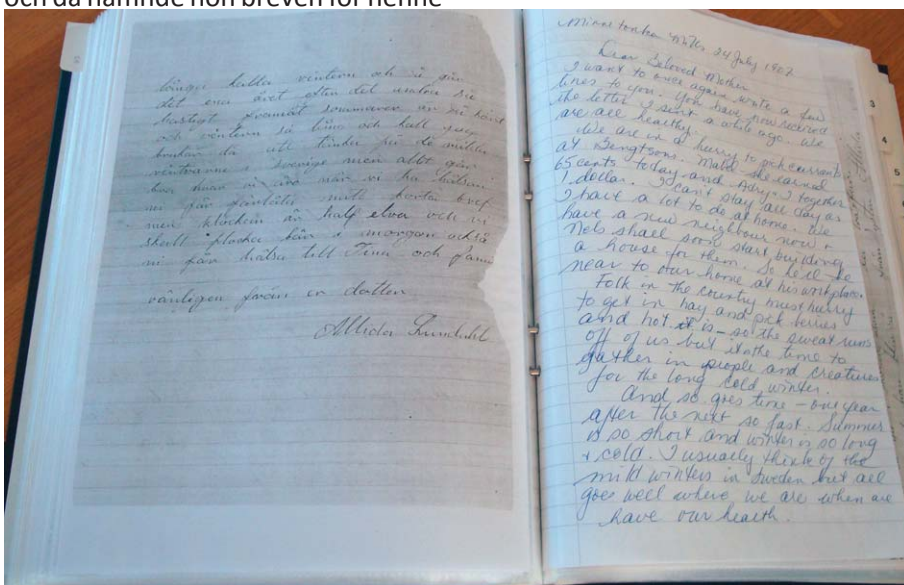 och då nämnde hon breven för henne
långa kalla vintern och så går
det ena året efter det andra så
hastigt framåt sommaren är så kort
och vintern så lång och kall jag
brukar då att tänka på de milda
vintrarne i Sverige men allt går
bra hvar vi äro när vi ha hälsan
ni får mitt korta bref
men klockan är half elva och vi
skall plocka bär i morgon också
ni får hälsa till Tina och
vänligen från en dotter
Lundahl
Minnetonka Mills 24 July 1902
Dear Beloved Mother
I want to once again wrote a few
lines to you. You have now received
the letter I sent a while ago. We
are all healthy.
We are in a hurry to pick currants
at Bengtsons. Mabel she earned
65 cents today and Adry, I together
1 dollar. I can't stay all day as
I have a lot to do at home. We
have a new neighbour now +
Nels shall soon start building
a house for them. So he'll be
near to our home at his workplace.
Folk in the country must hurry
to get in hay and pick berries
and hot it is - so the sweat runs
off of us but it is the time to
gather in people and creatures
for the long cold winter.
And so goes time - one year
after the next so fast. Summer
is so short and winter is so long
+ cold. I usually think of the
mild winters in Sweden but all
goes well where we are when we
have our health.
3
4
5